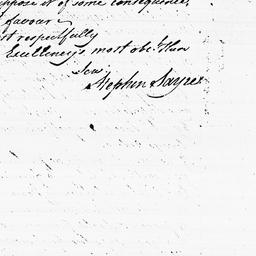 suppose it of some consequence,
favour
st respectfully
Excellency's most obt. Hbn
Serv.
Stephen Sayre